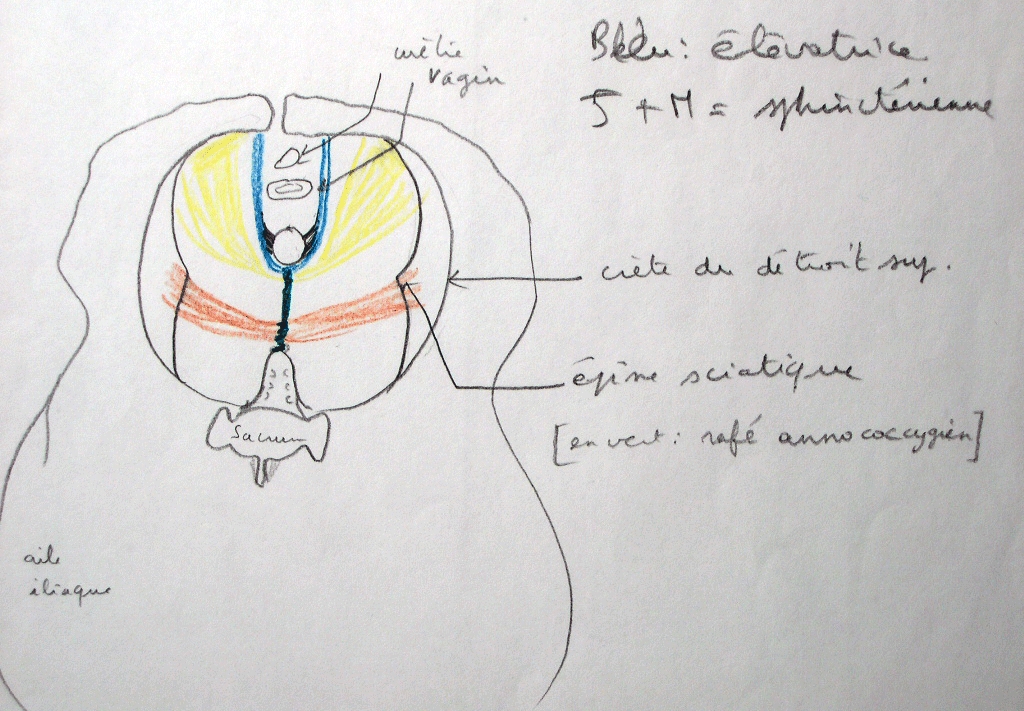 urètre
vagin
Bleu: élévatrice
J + M = sphinctérienne
crète du détroit sup.
épine sciatique
[en vert: rafé annococcygien]
Sacrum
aile
iliaque